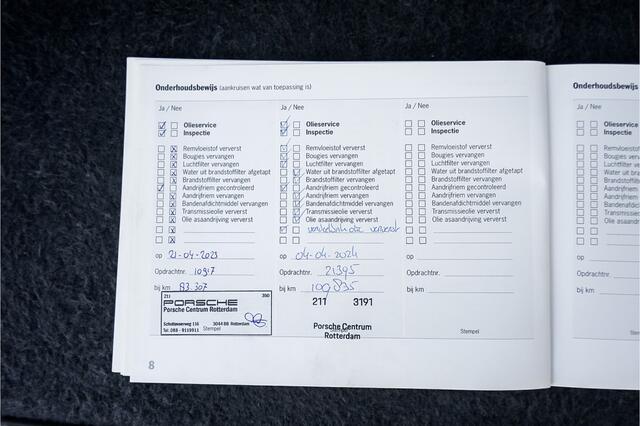 Onderhoudsbewijs (aankruisen wat van toepassing is)
Ja / Nee
Olieservice
Inspectie
Remvloeistof ververst
Bougies vervangen
Luchtfilter vervangen
Water uit brandstoffilter afgetapt
Brandstoffilter vervangen
Aandrijfriem gecontroleerd
Aandrijfriem vervangen
Bandenafdichtmiddel vervangen
Transmissieolie ververst
Olie asaandrijving ververst
op 21-04-2023
Opdrachtnr. 10917
bij km 83.307
211 350
PORSCHE
Porsche Centrum Rotterdam
Schuttevaerweg 116 3044 BB Rotterdam
Tel. 088 - 9119911 Stempel
Ja / Nee
Olieservice
Inspectie
Remvloeistof ververst
Bougies vervangen
Luchtfilter vervangen
Water uit brandstoffilter afgetapt
Brandstoffilter vervangen
Aandrijfriem gecontroleerd
Aandrijfriem vervangen
Bandenafdichtmiddel vervangen
Transmissieolie ververst
Olie asaandrijving ververst
ververst
op 04-04-2024
Opdrachtnr. 21395
bij km 109835
211 3191
Porsche Centrum
Rotterdam
Ja / Nee
Olieservice
Inspectie
Remvloeistof ververst
Bougies vervangen
Luchtfilter vervangen
Water uit brandstoffilter afgetapt
Brandstoffilter vervangen
Aandrijfriem gecontroleerd
Aandrijfriem vervangen
Bandenafdichtmiddel vervangen
Transmissieolie ververst
Olie asaandrijving ververst
op
Opdrachtnr.
bij km
Stempel
8
Onderhoudsbewijs
Ja / Nee
Olieservice
Inspectie
op
Opdrachtnr.
bij km